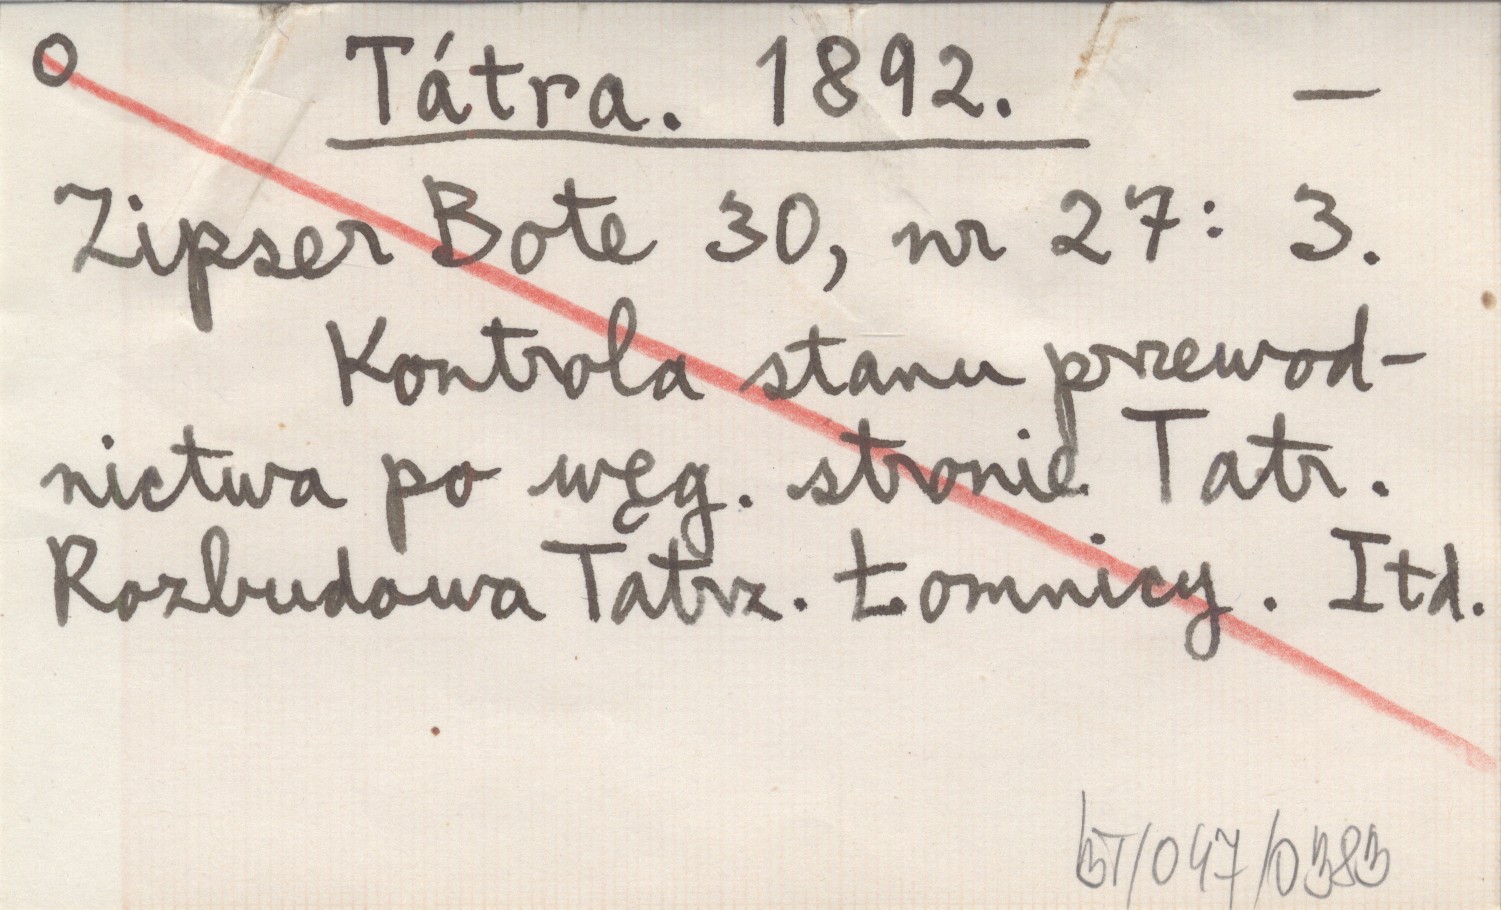 O Tátra. 1892. —
Zipser Bote 30, nr 27: 3.
Kontrola stanu przewod-
nictwa po węg. stronie Tatr.
Rozbudowa Tatrz. Łomnicy. Itd.
BT/047/0383